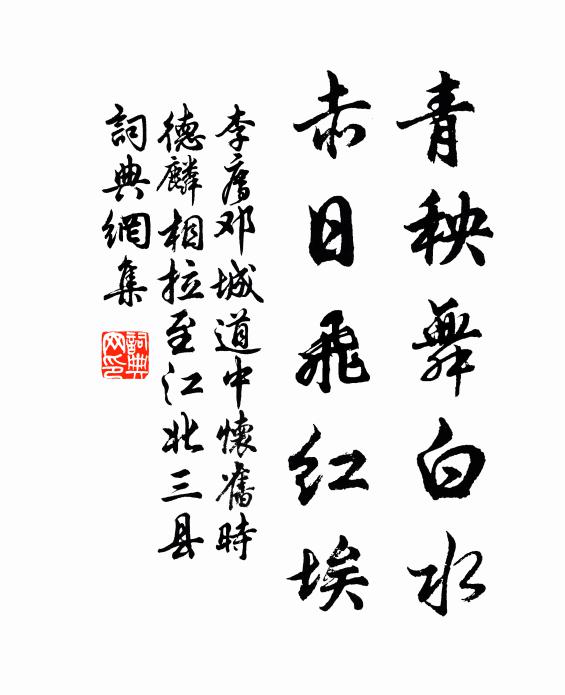 青秧舞白水
赤日飛紅埃
李廌邓城道中懷舊時
德麟相拉至江北三县
詞典網集
詞典网印